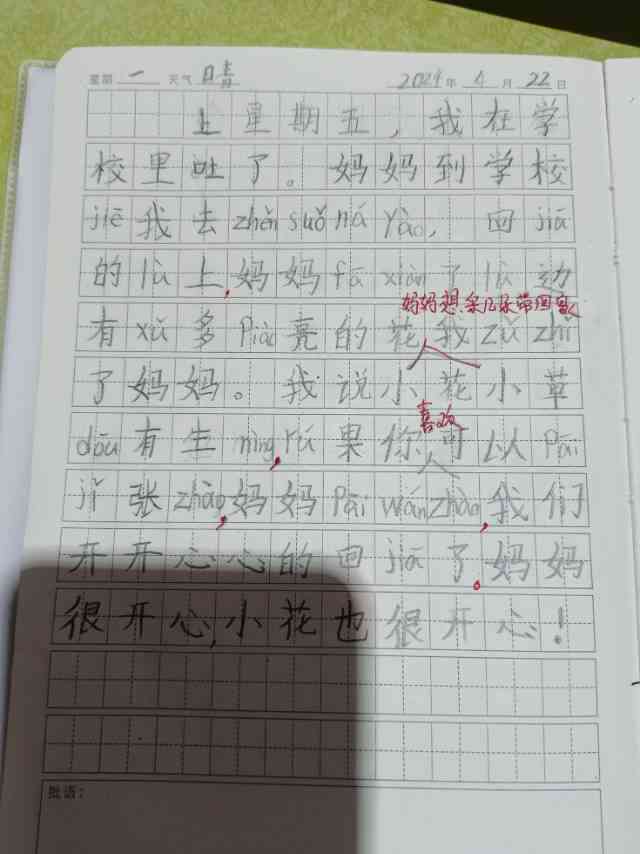 星期 一 天气 日青 2024 年 4 月 22 日
上星期五，我在学
校里吐了。妈妈到学校
jiē我去zhěn suǒ ná yào，回jiā
的lù上，妈妈fā xiàn了lù边
妈妈想采几朵带回家
有xǔ多piào亮的花我zǔ zhǐ
了妈妈。我说小花小草
喜欢
dōu有生mìng，rú果你可以pāi
jǐ张zhào，妈妈pāi wánzhào，我们
开开心心的回jiā了。妈妈
很开心，小花也很开心！
批语：